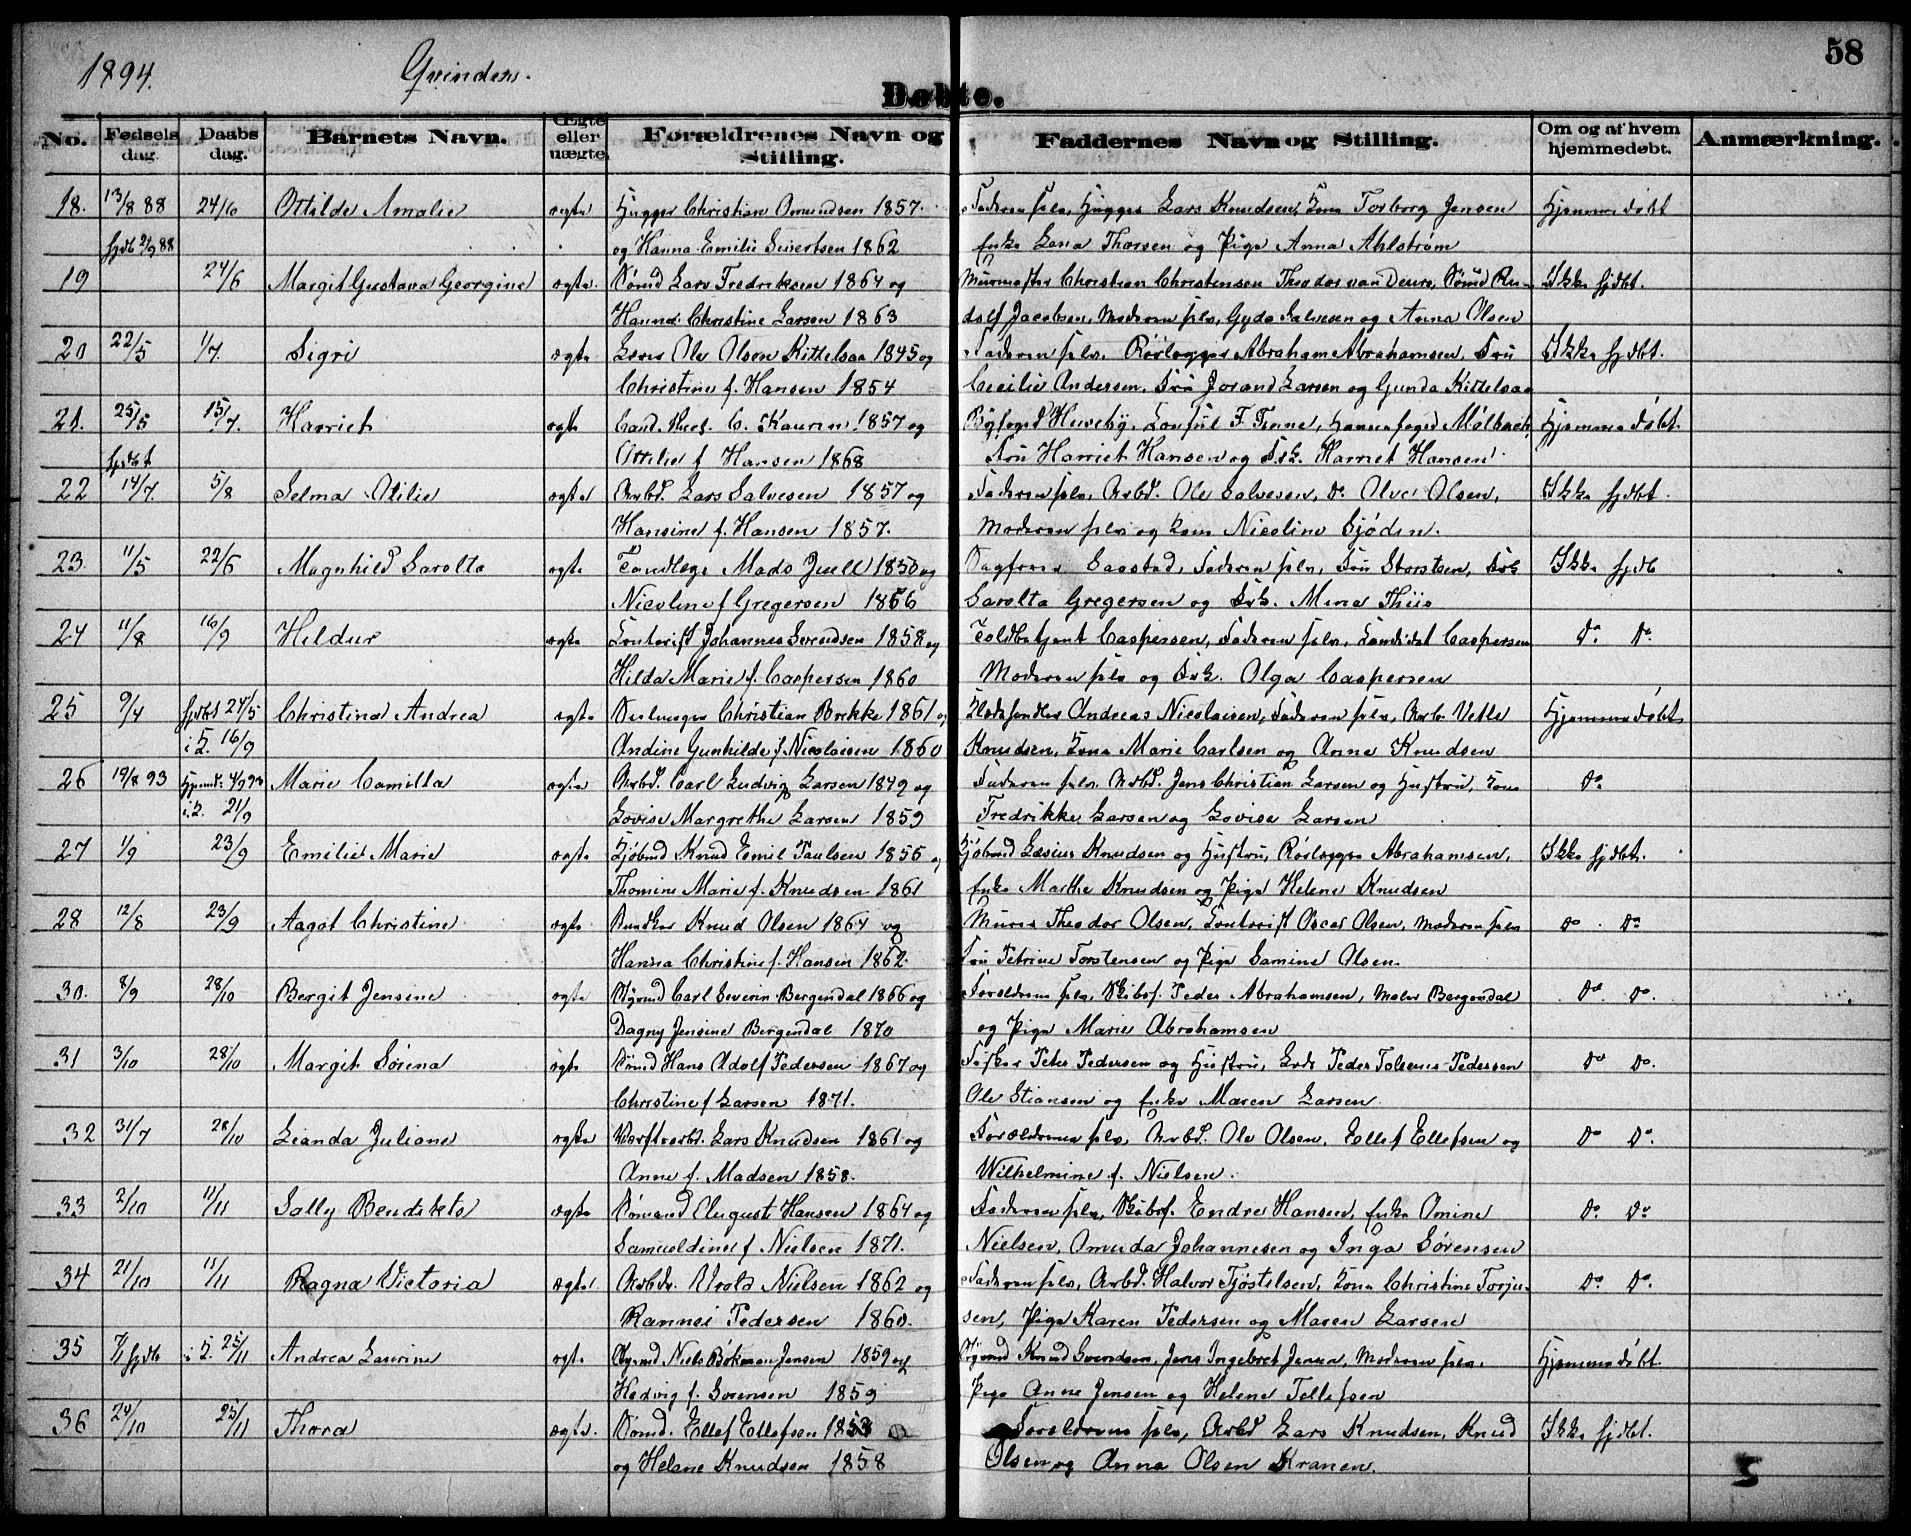 1894. Qvinder. 58
Døbte.
No. Fødsels dag. Daabs dag. Barnets Navn. Ægte eller uægte Forældrenes Navn og Stilling. Faddernes Navn og Stilling. Om og af hvem hjemmedøbt. Anmærkning.
18. 13/8 88 24/6 Ottilde Amalie ægte Hugger Christian Omundsen 1857. Faderen selv, Hugger Lars Knudsen, Kone Torborg Jensen Hjemmedøbt
hjdb 2/9 88 og Hanna Emilie Sivertsen 1862 Enke Lena Thorsen og Pige Anna Ahlstrøm
19 24/6 Margit Gustava Georgine ægte. Sømd Lars Fredriksen 1864 og Murmester Christian Christensen Theodor van Deurs, Sømd Ru- Ikke hjdbt.
Hanna Christine Larsen 1863 dolf Jacobsen, Moderen selv, Gyda Salvesen og Anna Olsen
20 22/5 1/7. Sigri ægte Ole Olsen Kittelsaa 1845 og Faderen selv, Rørlægger Abraham Abrahamsen, Fru Ikke hjdbt.
Christine f. Hansen 1854 Cecilie Andersen, Fru Jorand Larsen og Gunda Kittelsaa
21. 25/5 15/7. Harriet ægte Cand. theol. C. Kaurin 1857 og Byfoged Hvseby, Konsul F. Finne, Havnefoged Mølbach, Hjemmedøbt.
hjdbt Ottilie f Hansen 1868 Fru Harriet Hansen og Frk. Harriet Hansen
22 14/7. 5/8 Selma Otilie ægte Arbd. Lars Salvesen 1857 og Faderen selv, Arbd. Ole Salvesen, do Olves Olsen, Ikke hjdbt.
Hansine f. Hansen 1857. Moderen selv og Kone Nicoline Sjødin.
23. 11/5 22/6 Magnhild Sarolta ægte Tandlæge Mads Juell 1850 og Sagfører Saastad, Faderen selv, Fru Storstsen, Frk Ikke hjdb
Nicoline f Gregersen 1866 Sarolta Gregersen og Frk. Mina Thiis
24 11/8 16/9 Hildur ægte Kontorist Johannes Svendsen 1858 og Toldbetjent Caspersen, Faderen selv, Kandidat Caspersen Do Do.
Hilda Marie f. Caspersen 1860 Moderen selv og Frk. Olga Caspersen
25 9/4 hjdbt 24/5 Christine Andrea ægte Christian Brekke 1861 og Andreas Nicolaisen, Faderen selv, Arb. Vetle Hjemmedøbt
i K. 16/9 Andine Gunhilde f. Nicolaisen 1860 Knudsen, Kone Marie Carlsen og Anne Knudsen
26 19/8 93 Hjemd. 4/9 93 Marie Camilla ægte Arbd. Carl Ludvig Larsen 1849 og Faderen selv. Arbd. Jens Christian Larsen og Hustru, Kone Do
i K. 21/9 Lovise Margrethe Larsen 1859 Fredrikke Larsen og Lovise Larsen
27 1/9 23/9 Emilie Marie ægte Kjøbmd Knud Emil Paulsen 1855 og Kjøbmd Læsius Knudsen og Hustru, Rørlægger Abrahamsen, Ikke hjdbt.
Thomine Marie f. Knudsen 1861 Enke Marthe Knudsen og Pige Helene Knudsen
28 12/8 23/9 Aagot Christine ægte Knud Olsen 1864 og Murer Theodor Olsen, Kontorist Oscar Olsen, Moderen selv Do. Do
Hanna Christine f. Hansen 1862. Fru Petrine Torstensen og Pige Samine Olsen.
30. 8/9 28/10 Bergit Jensine ægte Styrmd Carl Severin Bergendal 1866 og Forældrene selv, Skibsf. Peder Abrahamsen, Maler Bergendal Do Do.
Dagny Jensine Bergendal 1870 og Pige Marie Abrahamsen
31 3/10 28/10 Margit Sørena ægte Sømd Hans Adolf Pedersen 1867 og Fisker Peter Pedersen og Hustru, Lods Peder Tolsenes Pedersen Do Do.
Christine f Larsen 1871. Ole Stiansen og Enke Maren Larsen.
32 31/7 28/10 Leanda Juliane ægte Værftsarbd. Lars Knudsen 1861 og Forældrene selv, Arbd. Ole Olsen, Ellef Ellefsen og Do Do.
Anne f. Madsen 1858. Wilhelmine f. Nielsen.
33 2/10 11/11 Sally Bendikte ægte Sømand August Hansen 1864 og Faderen selv, Skibsf. Endre Hansen, Enke Omine Do. Do
Samueldine f Nielsen 1871. Nielsen, Omunda Johannesen og Inga Sørensen
34 21/10 11/11 Ragna Victoria ægte Arbdr. Arold Nielsen 1862 og Faderen selv, Arbd. Halvor Tjøstelsen, Kone Christine Torju- Do Do.
Rannei Pedersen 1860. sen, Pige Karen Pedersen og Maren Larsen
35 7/1 hjdb i K. 25/11 Andrea Laurine ægte Styrmd Niels Bøkman Jensen 1859 og Styrmd Knud Svendsen, Jens Ingebret Jensen, Moderen selv. Hjemmedøbt
Hedvig f. Sørensen 1859 Pige Anne Jensen og Helene Tellefsen
36 24/10 25/11 Thora ægte. Sømd. Ellef Ellefsen 1853 Forældrene selv, Arbd Lars Knudsen, Knud Ikke hjdbt.
og Helene Knudsen 1858 Olsen og Anna Olsen Kranen.